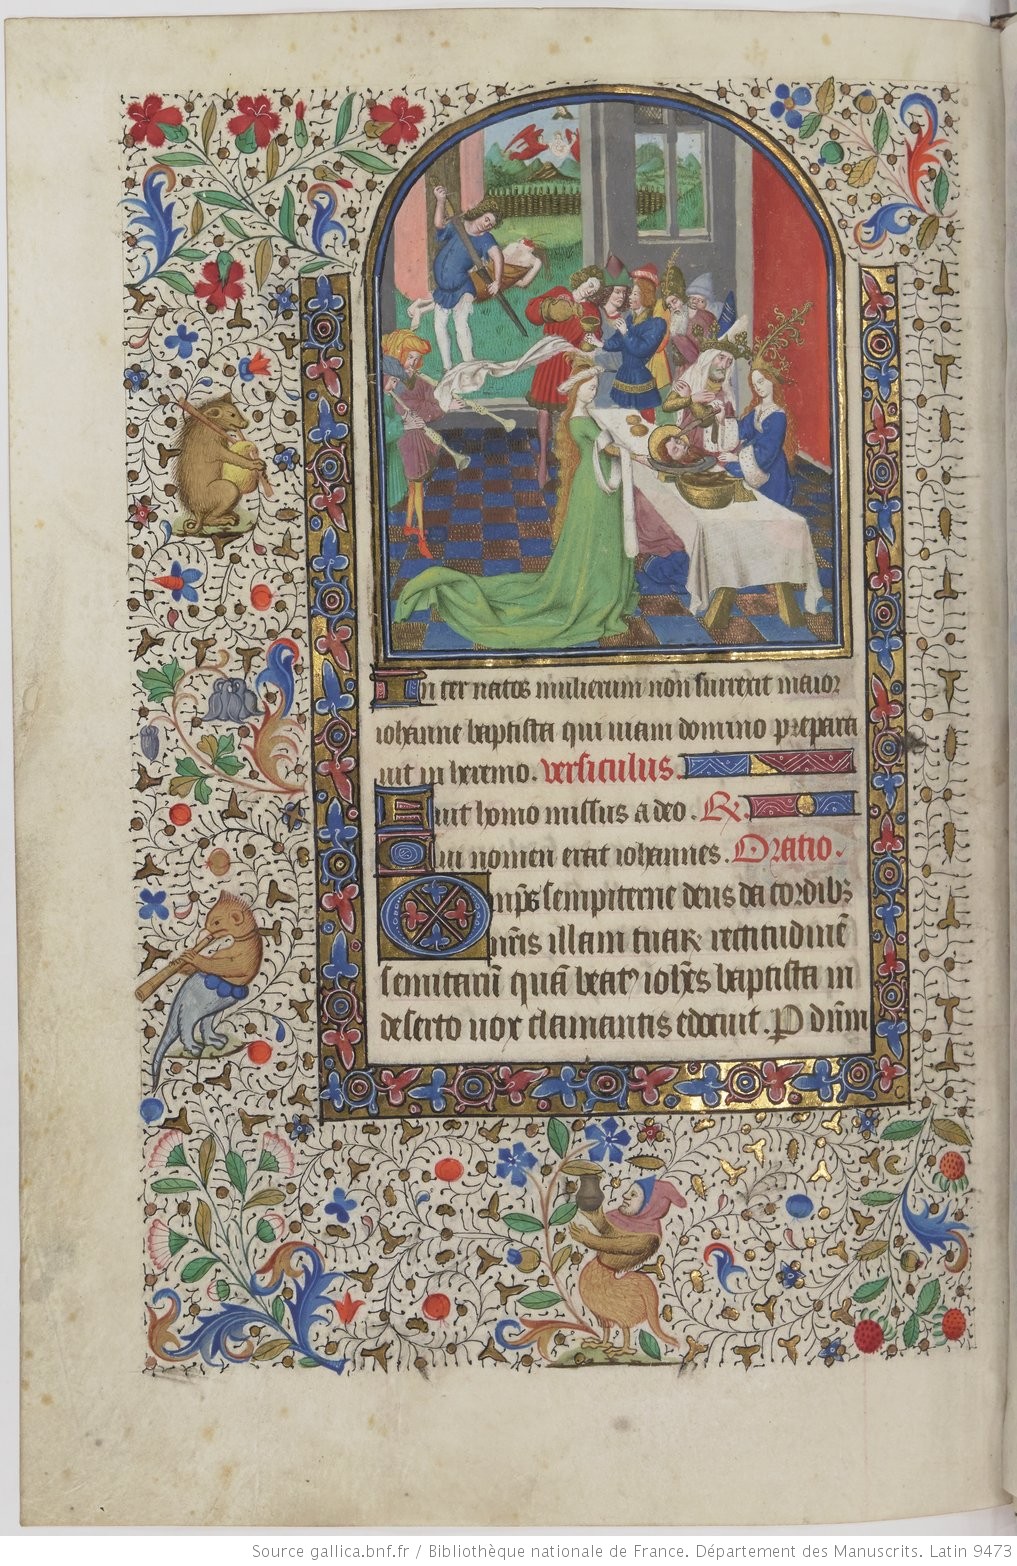 Inter natos mulierum non surrexit maior
iohanne baptista qui uiam domino prepara
uit in heremo. versiculus.
Fuit homo missus a deo. R.
Cui nomen erat iohannes. Oratio.
Omps sempiterne deus da cordibz
nr̃is illam tuaꝝ rectitudinē
semitarū quā beatꝰ ioh̃es baptista in
deserto uox clamantis edocuit. P dñm
Source gallica.bnf.fr / Bibliothèque nationale de France. Département des Manuscrits. Latin 9473